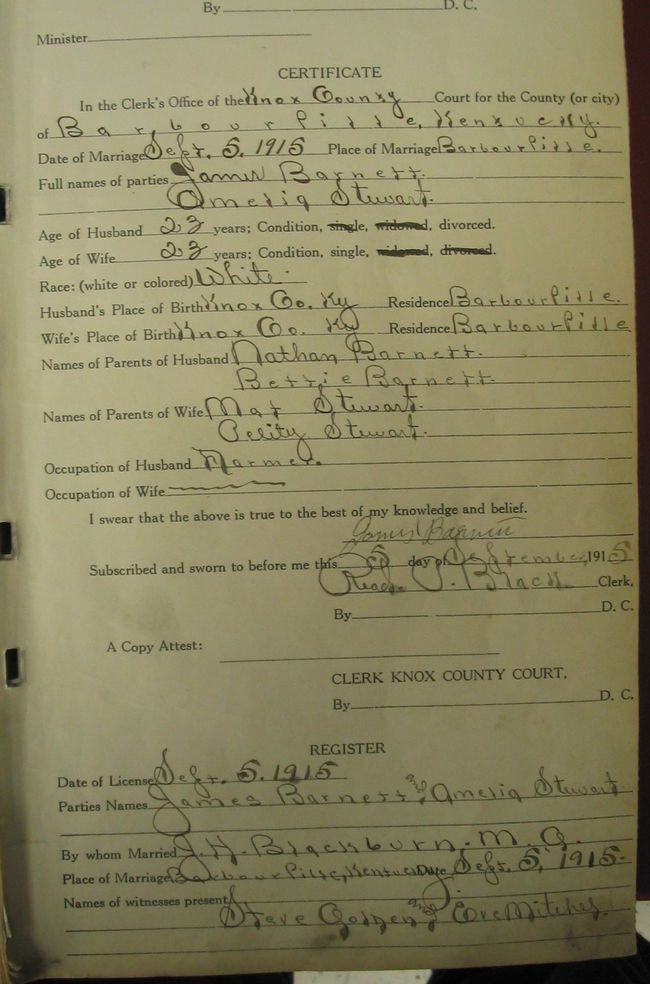 By D. C.
Minister
CERTIFICATE
In the Clerk's Office of the Knox County Court for the County (or city)
of Barbourville, Kentucky.
Date of Marriage Sept. 5, 1915 Place of Marriage Barbourville.
Full names of parties James Barnett.
Amelia Stewart.
Age of Husband 23 years; Condition, single, widowed, divorced.
Age of Wife 23 years; Condition, single, widowed, divorced.
Race: (white or colored) White.
Husband's Place of Birth Knox Co. Ky Residence Barbourville.
Wife's Place of Birth Knox Co. Ky Residence Barbourville
Names of Parents of Husband Nathan Barnett.
Bettie Barnett.
Names of Parents of Wife Mat Stewart.
Stewart.
Occupation of Husband Farmer.
Occupation of Wife
I swear that the above is true to the best of my knowledge and belief.
James Barnett
Subscribed and sworn to before me this 5 day of September, 1915
Read P. Black Clerk.
By D. C.
A Copy Attest:
CLERK KNOX COUNTY COURT.
By D. C.
REGISTER
Date of License Sept. 5, 1915
Parties Names James Barnett and Amelia Stewart
By whom Married J. H. Blackburn, M. G.
Place of Marriage Barbourville, Kentucky Date Sept. 5, 1915.
Names of witnesses present
Steve and Eve Mitchel